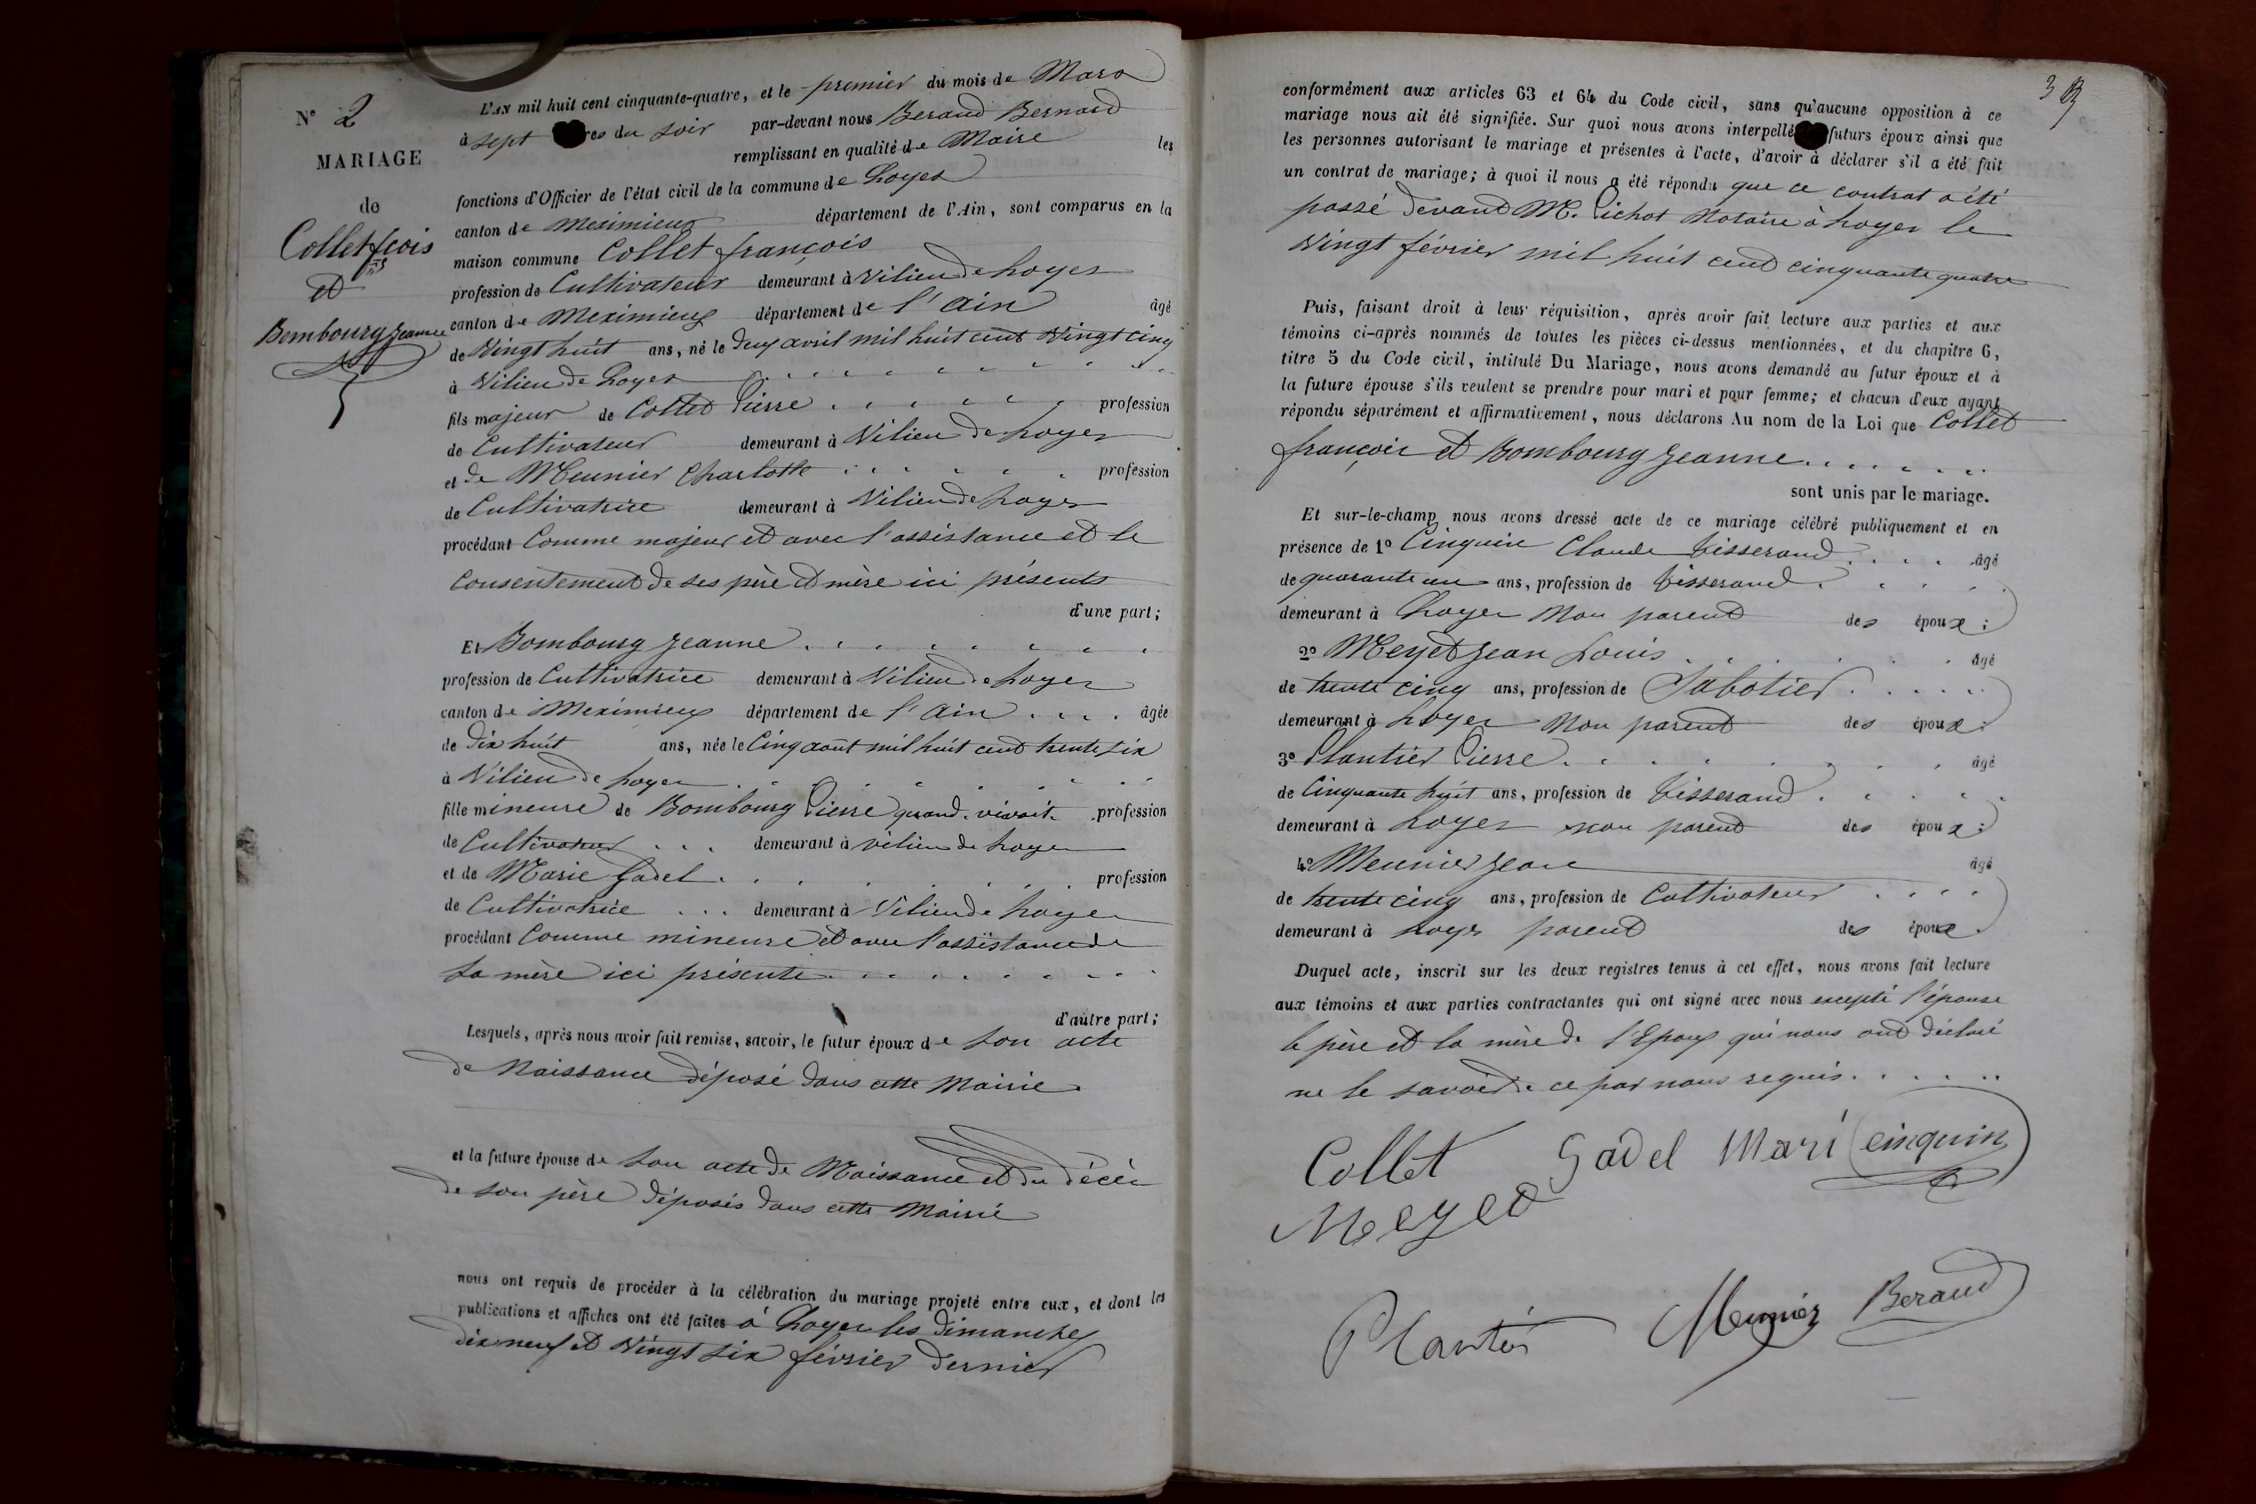 N° 2
MARIAGE
de
Collet fcois
et
Bombourg Jeanne
L'AN mil huit cent cinquante-quatre, et le premier du mois de Mars
à sept res du soir par-devant nous Beraud Bernard
remplissant en qualité de Maire les
fonctions d'Officier de l'état civil de la commune de Loyes
canton de Meximieux département de l'Ain, sont comparus en la
maison commune Collet françois
profession de Cultivateur demeurant à Vilieu de Loyes
canton de Meximieux département de l'Ain âgé
de Vingt huit ans, né le deux avril mil huit cent Vingt cinq
à Vilieu de Loyes
fils majeur de Collet Pierre profession
de Cultivateur demeurant à Vilieu de Loyes
et de Meunier Charlotte profession
de Cultivatrice demeurant à Vilieu de Loyes
procédant Comme majeur et avec l'assistance et le
Consentement de ses père et mère ici présents
d'une part;
Et Bombourg Jeanne
profession de Cultivatrice demeurant à Vilieu de Loyes
canton de Meximieux département de l'Ain âgée
de Dix huit ans, née le Cinq août mil huit cent trente six
à Vilieu de Loyes
fille mineure de Bombourg Pierre quand vivait profession
de Cultivateur demeurant à vilieu de Loyes
et de Marie Gadel profession
de Cultivatrice demeurant à Vilieu de Loyes
procédant Comme mineure et avec l'assistance de
Sa mère ici présente
d'autre part;
Lesquels, après nous avoir fait remise, savoir, le futur époux de son acte
de Naissance déposé dans cette Mairie
et la future épouse de son acte de Naissance et du décès
de son père déposés dans cette Mairie
nous ont requis de procéder à la célébration du mariage projeté entre eux, et dont les
publications et affiches ont été faites à Loyes les Dimanches
dix neuf et Vingt six février dernier
3
conformément aux articles 63 et 64 du Code civil, sans qu'aucune opposition à ce
mariage nous ait été signifiée. Sur quoi nous avons interpellé futurs époux ainsi que
les personnes autorisant le mariage et présentes à l'acte, d'avoir à déclarer s'il a été fait
un contrat de mariage; à quoi il nous a été répondu que ce contrat a été
passé devant Me. Pichot Notaire à Loyes le
Vingt février mil huit cent cinquante quatre
Puis, faisant droit à leur réquisition, après avoir fait lecture aux parties et aux
témoins ci-après nommés de toutes les pièces ci-dessus mentionnées, et du chapitre 6,
titre 5 du Code civil, intitulé Du Mariage, nous avons demandé au futur époux et à
la future épouse s'ils veulent se prendre pour mari et pour femme; et chacun d'eux ayant
répondu séparément et affirmativement, nous déclarons Au nom de la Loi que Collet
françois et Bombourg Jeanne
sont unis par le mariage.
Et sur-le-champ nous avons dressé acte de ce mariage célébré publiquement et en
présence de 1° Cinquin Claude Tisserand âgé
de quarante un ans, profession de Tisserand
demeurant à Loyes Non parent des époux;
2° Meyet Jean Louis âgé
de trente cinq ans, profession de Sabotier
demeurant à Loyes Non parent des époux;
3° Plantier Pierre âgé
de Cinquante huit ans, profession de Tisserand
demeurant à Loyes non parent des époux;
4° Meunier Jean âgé
de trente cinq ans, profession de Cultivateur
demeurant à Loyes parent des époux.
Duquel acte, inscrit sur les deux registres tenus à cet effet, nous avons fait lecture
aux témoins et aux parties contractantes qui ont signé avec nous excepté l'épouse
le père et la mère de l'Epoux qui nous ont déclaré
ne le savoir de ce par nous requis
Collet Gadel Mari cinquin
Meyed
Plantier Meunier Beraud